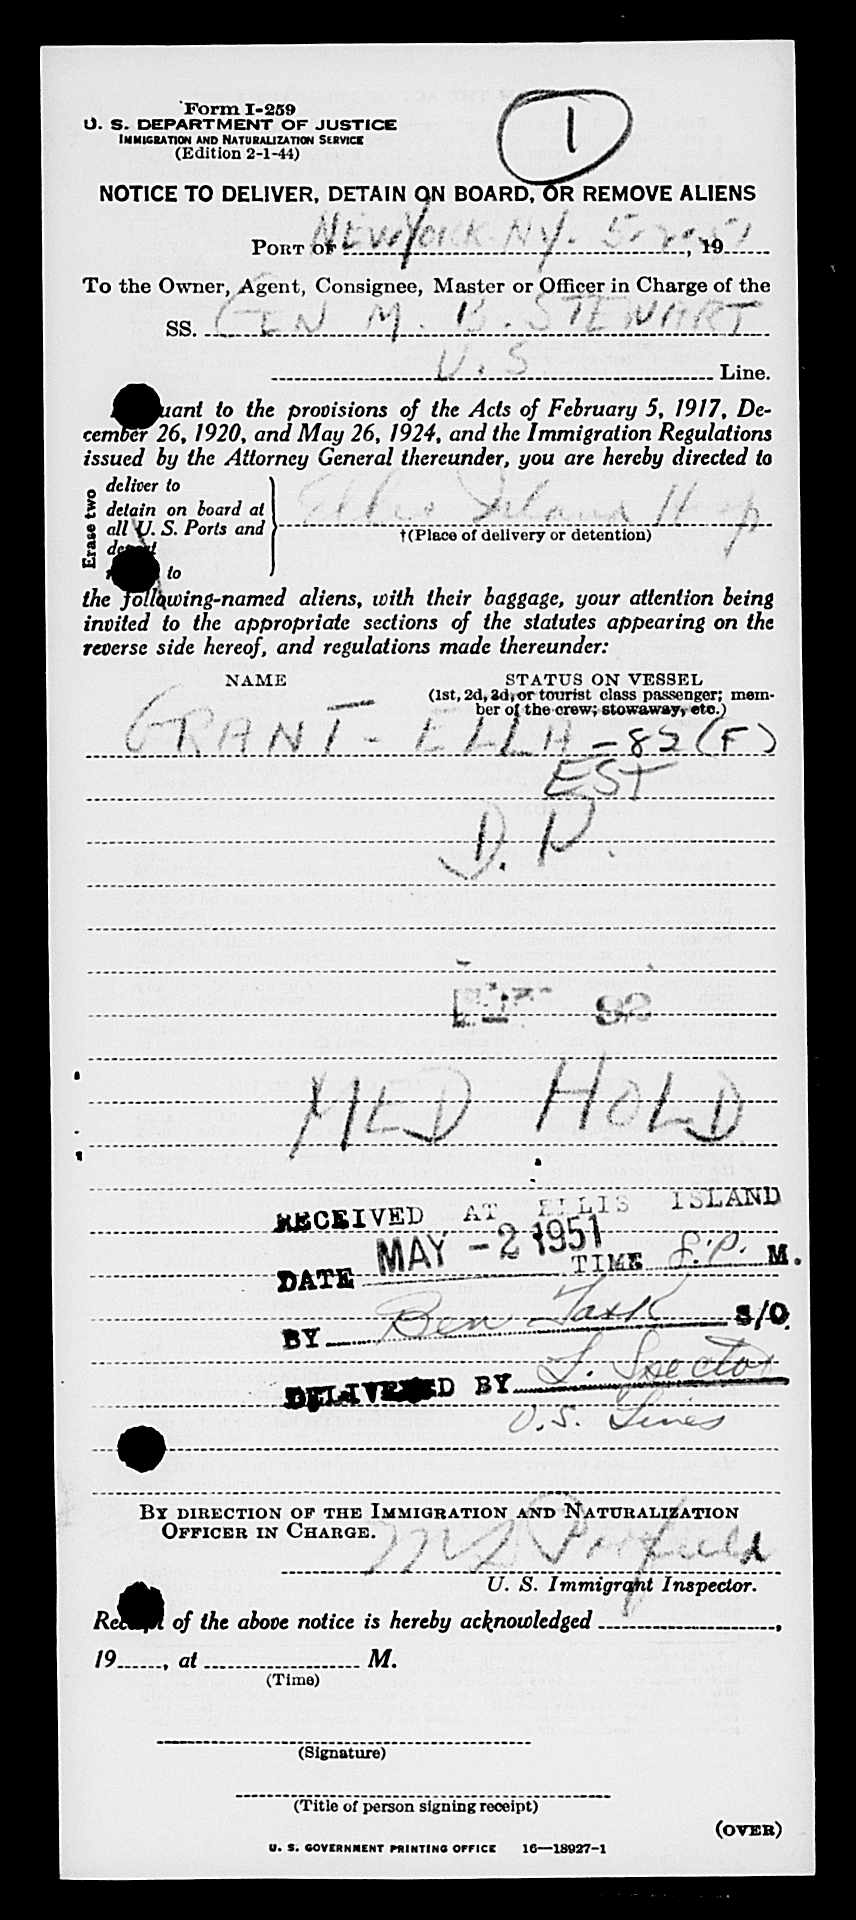 Form I-259
U. S. DEPARTMENT OF JUSTICE
IMMIGRATION AND NATURALIZATION SERVICE
(Edition 2-1-44)
1
NOTICE TO DELIVER, DETAIN ON BOARD, OR REMOVE ALIENS
PORT OF NEW YORK NY. 5-2-51, 19
To the Owner, Agent, Consignee, Master or Officer in Charge of the
SS. GEN M. B. STEWART
U. S. Line.
uant to the provisions of the Acts of February 5, 1917, De-
cember 26, 1920, and May 26, 1924, and the Immigration Regulations
issued by the Attorney General thereunder, you are hereby directed to
Erase two
deliver to
detain on board at
all U. S. Ports and
to
Ellis Island Hosp
†(Place of delivery or detention)
the following-named aliens, with their baggage, your attention being
invited to the appropriate sections of the statutes appearing on the
reverse side hereof, and regulations made thereunder:
NAME STATUS ON VESSEL
(1st, 2d, 3d, or tourist class passenger; mem-
ber of the crew; stowaway, etc.)
GRANT - ELLA - 82 (F)
EST
D. P.
82
MED HOLD
RECEIVED AT ELLIS ISLAND
DATE MAY -2 1951 TIME P. M.
BY Ben Task S/O
DELIVERED BY L. Spector
U.S. Lines
BY DIRECTION OF THE IMMIGRATION AND NATURALIZATION
OFFICER IN CHARGE.
Porfield
U. S. Immigrant Inspector.
Receipt of the above notice is hereby acknowledged ,
19 , at M.
(Time)
(Signature)
(Title of person signing receipt)
(OVER)
U. S. GOVERNMENT PRINTING OFFICE 16—18927-1